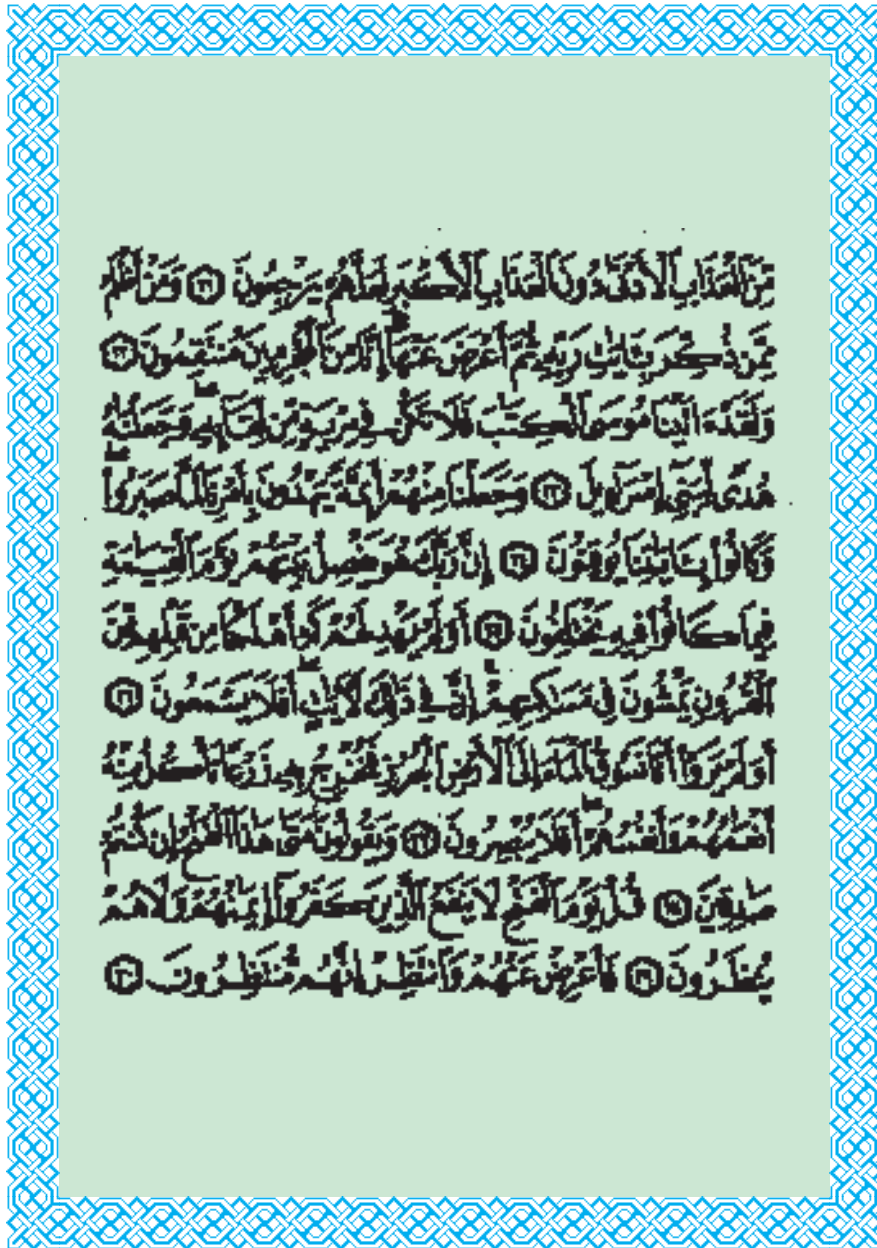 مِّنَ ٱلْعَذَابِ ٱلْأَدْنَىٰ دُونَ ٱلْعَذَابِ ٱلْأَكْبَرِ لَعَلَّهُمْ يَرْجِعُونَ ﴿٢١﴾ وَمَنْ أَظْلَمُ
مِمَّن ذُكِّرَ بِـَٔايَـٰتِ رَبِّهِۦ ثُمَّ أَعْرَضَ عَنْهَآ ۚ إِنَّا مِنَ ٱلْمُجْرِمِينَ مُنتَقِمُونَ ﴿٢٢﴾
وَلَقَدْ ءَاتَيْنَا مُوسَى ٱلْكِتَـٰبَ فَلَا تَكُن فِى مِرْيَةٍ مِّن لِّقَآئِهِۦ ۖ وَجَعَلْنَـٰهُ
هُدًى لِّبَنِىٓ إِسْرَٰٓءِيلَ ﴿٢٣﴾ وَجَعَلْنَا مِنْهُمْ أَئِمَّةً يَهْدُونَ بِأَمْرِنَا لَمَّا صَبَرُوا۟ ۖ
وَكَانُوا۟ بِـَٔايَـٰتِنَا يُوقِنُونَ ﴿٢٤﴾ إِنَّ رَبَّكَ هُوَ يَفْصِلُ بَيْنَهُمْ يَوْمَ ٱلْقِيَـٰمَةِ
فِيمَا كَانُوا۟ فِيهِ يَخْتَلِفُونَ ﴿٢٥﴾ أَوَلَمْ يَهْدِ لَهُمْ كَمْ أَهْلَكْنَا مِن قَبْلِهِم مِّنَ
ٱلْقُرُونِ يَمْشُونَ فِى مَسَـٰكِنِهِمْ ۚ إِنَّ فِى ذَٰلِكَ لَـَٔايَـٰتٍ ۖ أَفَلَا يَسْمَعُونَ ﴿٢٦﴾
أَوَلَمْ يَرَوْا۟ أَنَّا نَسُوقُ ٱلْمَآءَ إِلَى ٱلْأَرْضِ ٱلْجُرُزِ فَنُخْرِجُ بِهِۦ زَرْعًا تَأْكُلُ مِنْهُ
أَنْعَـٰمُهُمْ وَأَنفُسُهُمْ ۖ أَفَلَا يُبْصِرُونَ ﴿٢٧﴾ وَيَقُولُونَ مَتَىٰ هَـٰذَا ٱلْفَتْحُ إِن كُنتُمْ
صَـٰدِقِينَ ﴿٢٨﴾ قُلْ يَوْمَ ٱلْفَتْحِ لَا يَنفَعُ ٱلَّذِينَ كَفَرُوٓا۟ إِيمَـٰنُهُمْ وَلَا هُمْ
يُنظَرُونَ ﴿٢٩﴾ فَأَعْرِضْ عَنْهُمْ وَٱنتَظِرْ إِنَّهُم مُّنتَظِرُونَ ﴿٣٠﴾